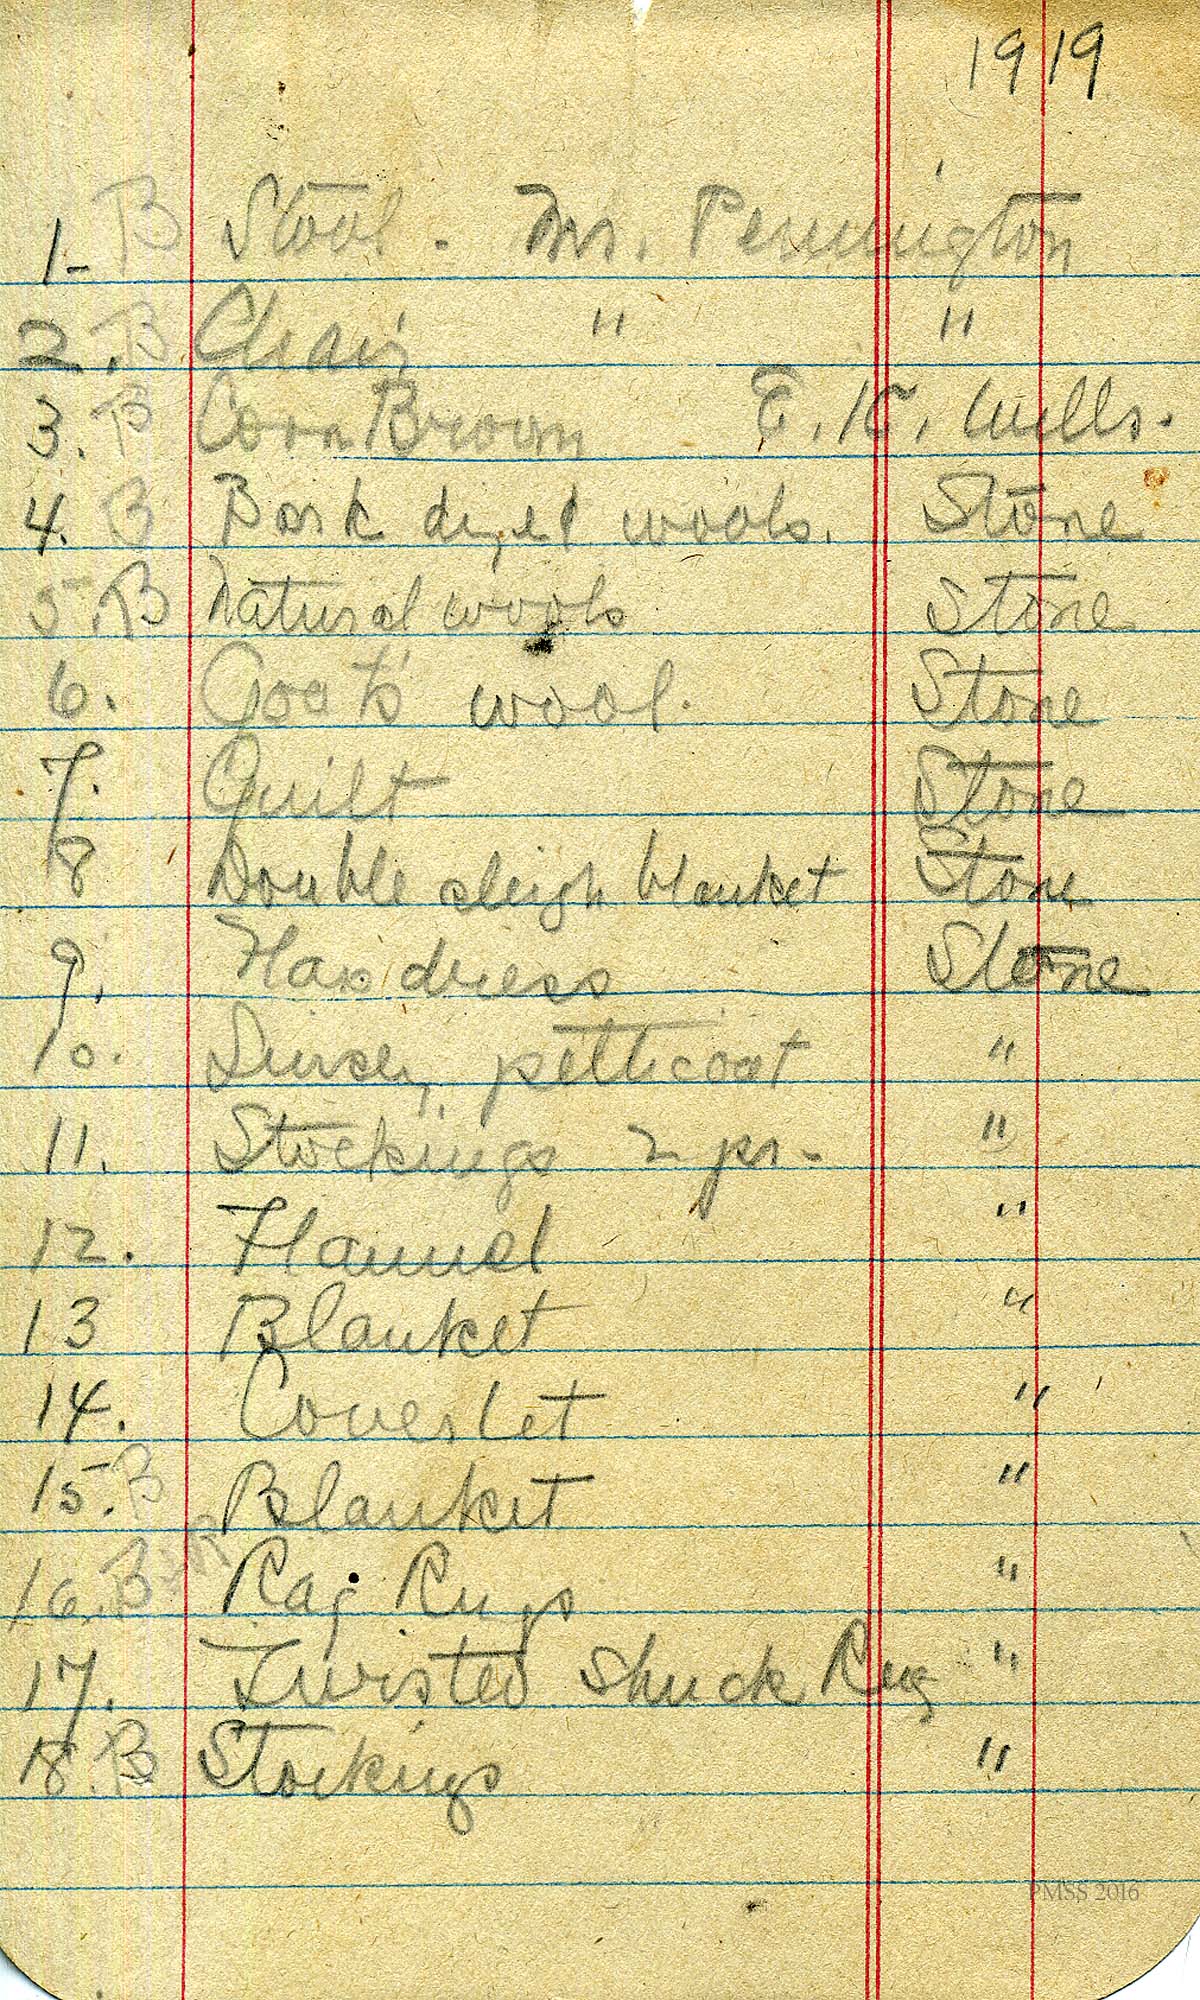 1919
1- B Stool. Mr. Pennington
2. B Chair " "
3. B Corn Broom E. K. Wells.
4. B Bark dyed wools. Stone
5. B Natural wools Stone
6. Goat's wool. Stone
7. Quilt Stone
8 Double sleigh blanket Stone
9. Flax dress Stone
10. Linsey petticoat "
11. Stockings 2 pr- "
12. Flannel "
13 Blanket "
14. Coverlet "
15. B Blanket "
16. B Rag Rugs "
17. Twisted Shuck Rug "
18. B Stockings "
PMSS 2016